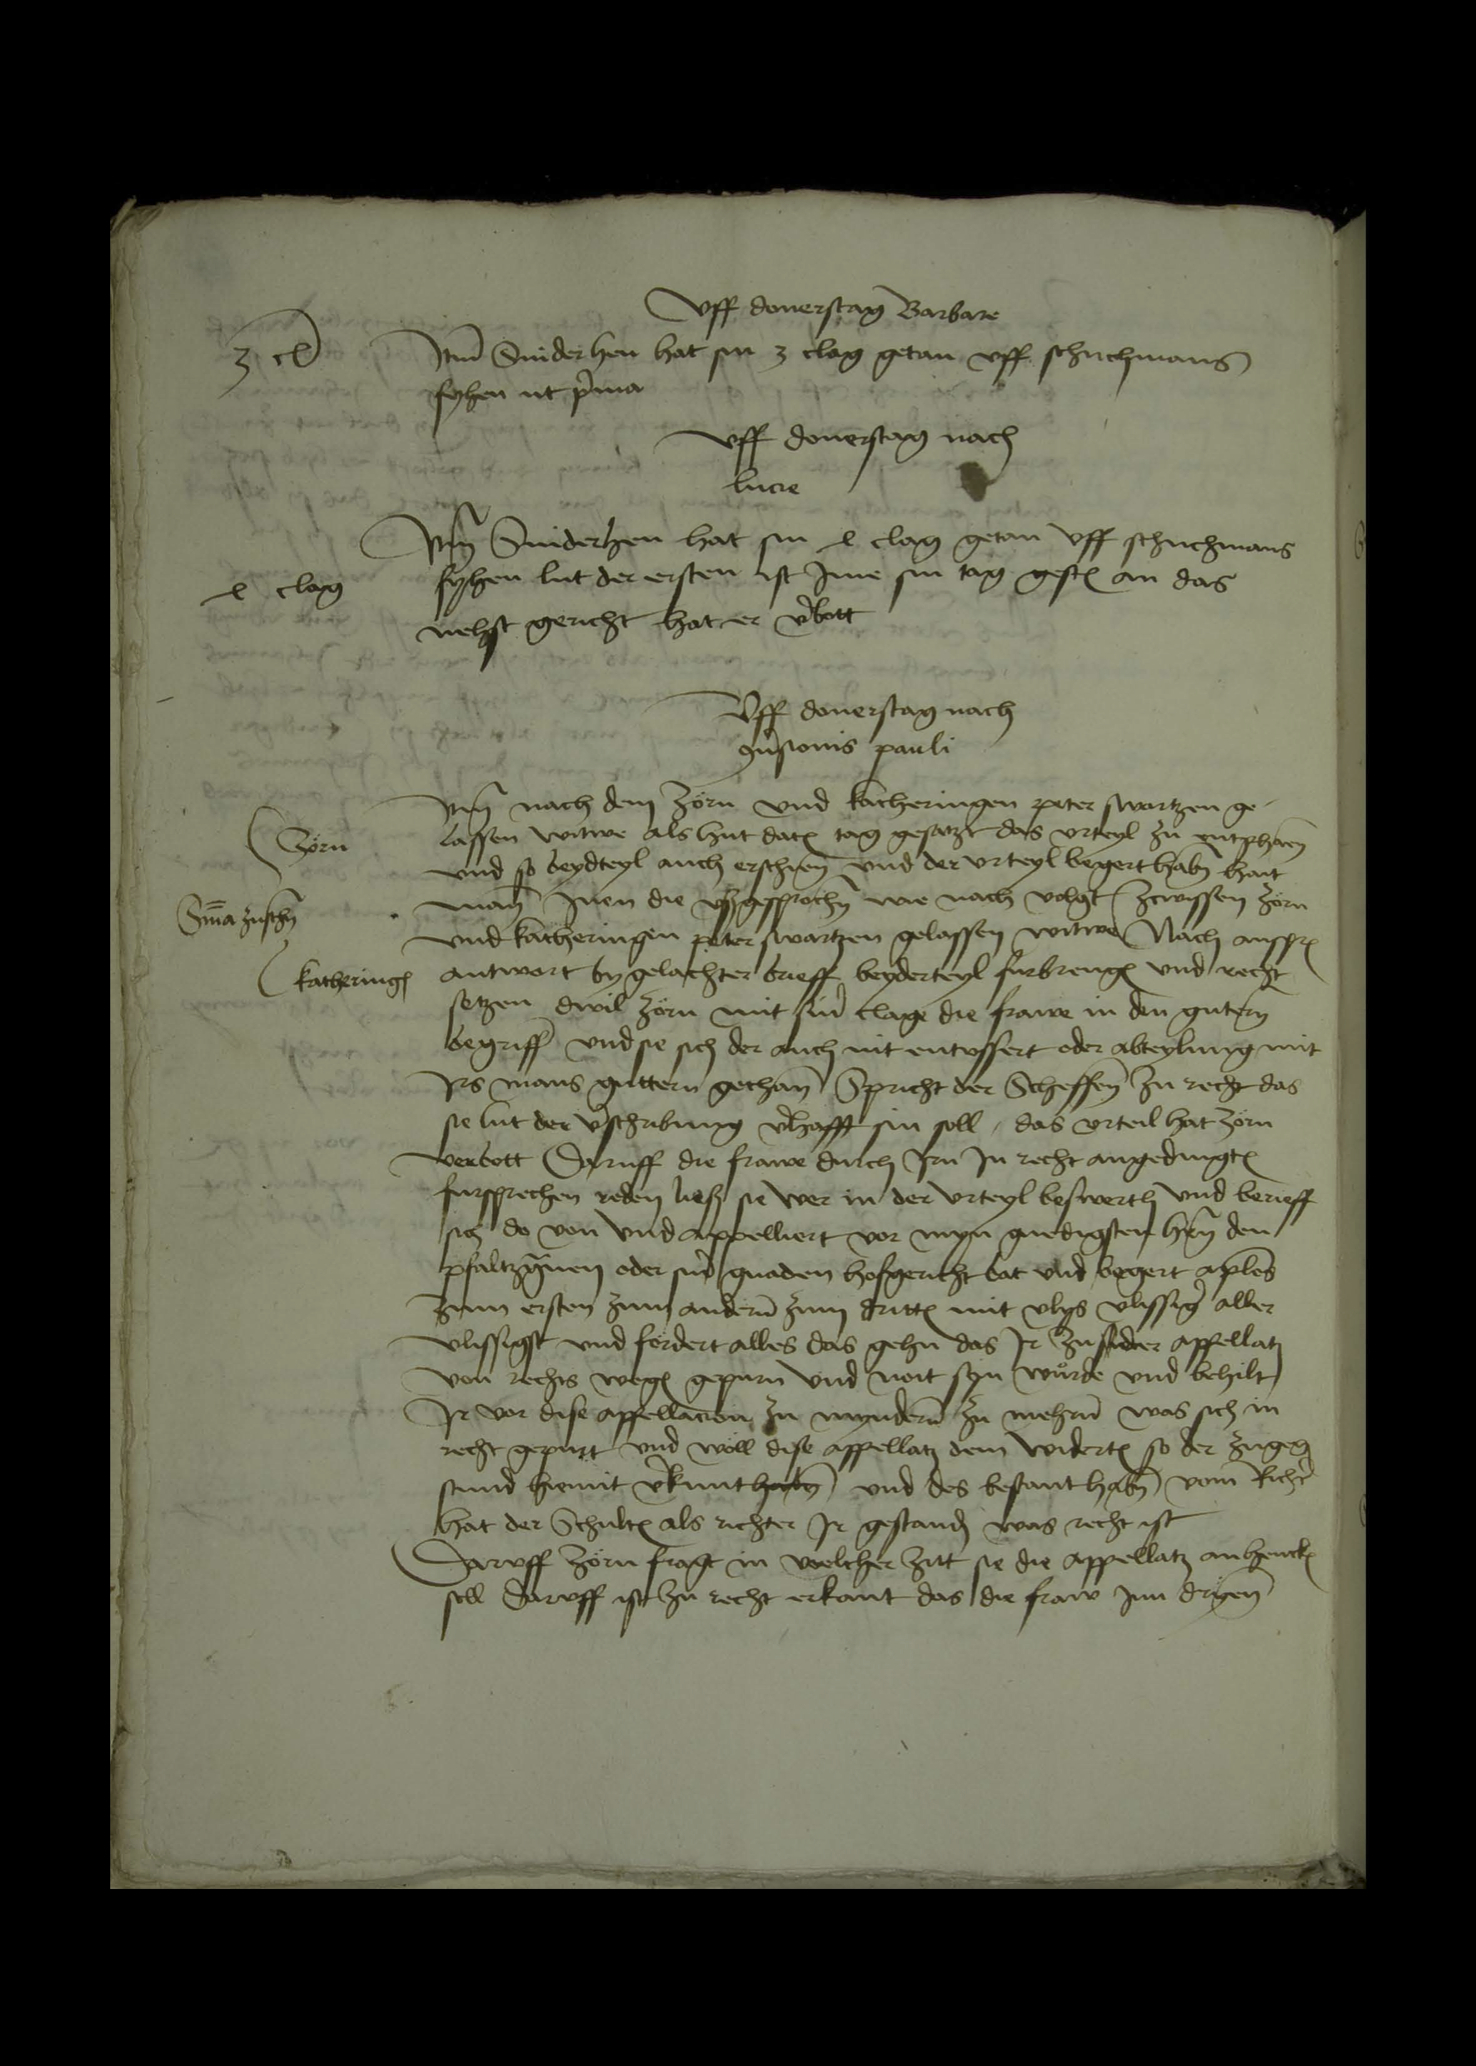 Vff donerstag Barbare
3 cl
Item Sniderhen hat sin 3 clag getan vff schuchmans
hyhen ut prima
vff donerstag nach
lucie
Item Sniderhen hat sin 4 clag getan vff schuchmans
4 clag
hyhen lut der ersten ist Jme sin tag gestt an das
nehst gericht hat er verbott
Vff donerstag nach
conversionis pauli
Item nach dem Zörn vnd katheringen peter swartzen ge-
Zörn
lassen witwe als hut dato tag gesatzt das vrteyl zu entphaen
vnd so beydteyl auch erschien vnd der vrteyl begert haben hait
Sentencia zuschen
man Jnen die vßgesprochen wie nach volgt Zwissen Zörn
vnd katheringen peter swartzen gelassen witwe Nach anspr
katheringen
antwort by gelachter brieff beyderteyl furbrengen vnd recht
setzen dwil Zörn mit siner clage die frawe in den gutern
begriff vnd sie sich der auch nit entvssert oder abteylung mit
Jrs mans guttern gethan Spricht der Scheffen zu recht das
sie lut der verschribung verhafft sin soll, das vrteil hat Zörn
verbott Daruff die frawe durch Jrn Jn recht angedingten
fursprechen reden ließ sie wer in der vrteyl beswerth vnd berieff
sich do von vnd appelliert vor myn gnedigsten hern den
pfaltzgrauen oder siner gnaden hofgericht bat vnd begert aplos
zum ersten zum andern zum dritten mit vlys vlissiger aller
vlissigst vnd fordert alles das gehn das Jr zu sidder appellatz
von rechts wegen gepurn vnd noit syn wurde vnd behilt
Jr vor dise appellacion zu myndern zu mehrn was sich in
recht gepurt vnd woll dise appellatz dem widerten so der zugegen
stund hiemit verkunt haben vnd des bekant haben vom Richter
hat der Schulten als richter Jr gestanden was recht ist
Daruff Zörn fragt in welcher zitt sie die appellatz anhencken
soll Daruff ist zu recht erkant das die fraw Jnn dryen